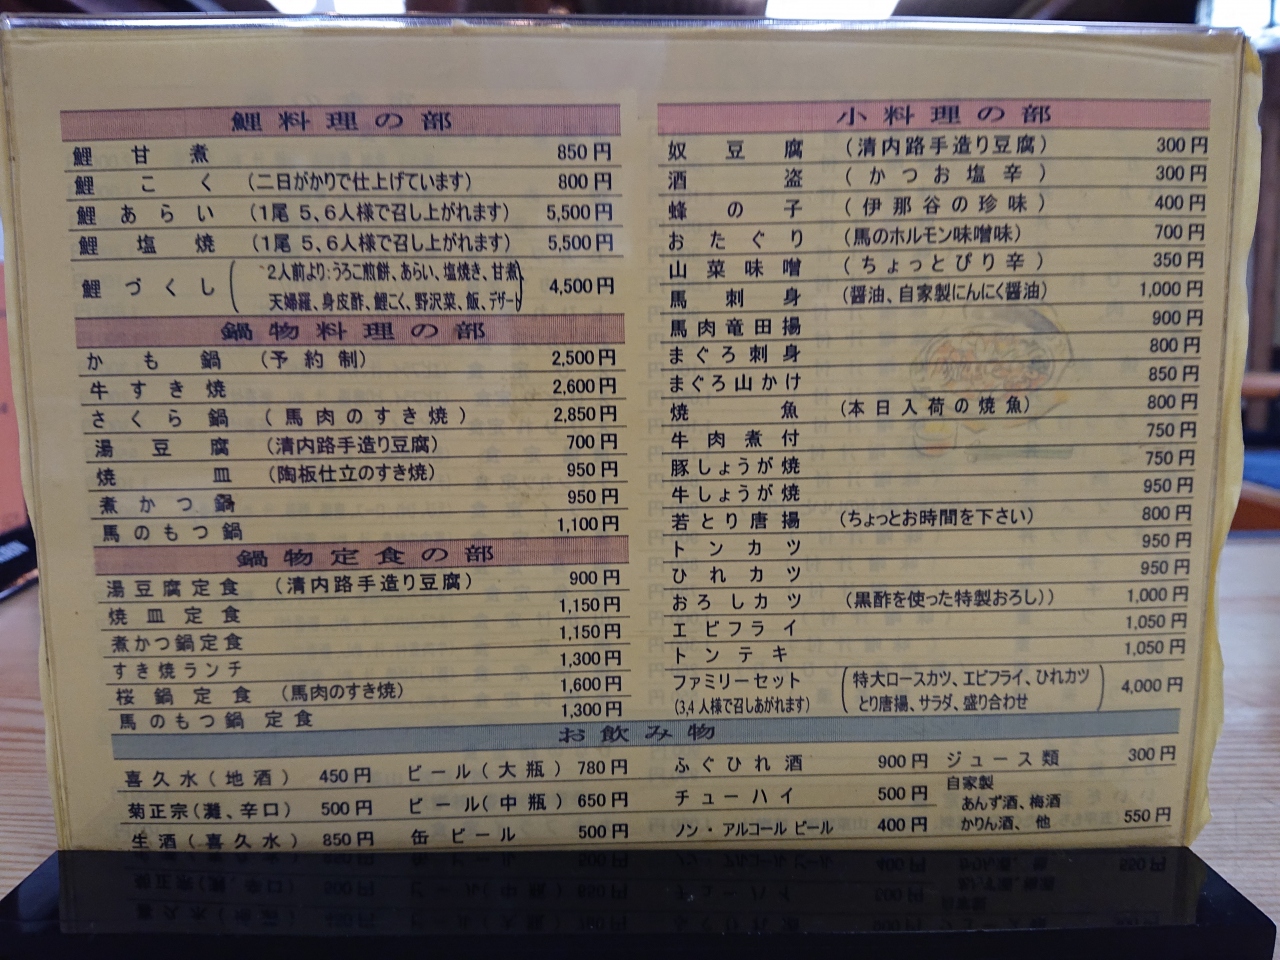 鯉料理の部
鯉甘煮 850円
鯉こく (二日がかりで仕上げています) 800円
鯉あらい (1尾 5、6人様で召し上がれます) 5,500円
鯉塩焼 (1尾 5、6人様で召し上がれます) 5,500円
鯉づくし (2人前より:うろこ煎餅、あらい、塩焼き、甘煮 天婦羅、身皮酢、鯉こく、野沢菜、飯、デザート) 4,500円
鍋物料理の部
かも鍋 (予約制) 2,500円
牛すき焼 2,600円
さくら鍋 (馬肉のすき焼) 2,850円
湯豆腐 (清内路手造り豆腐) 700円
焼皿 (陶板仕立のすき焼) 950円
煮かつ鍋 950円
馬のもつ鍋 1,100円
鍋物定食の部
湯豆腐定食 (清内路手造り豆腐) 900円
焼皿定食 1,150円
煮かつ鍋定食 1,150円
すき焼ランチ 1,300円
桜鍋定食 (馬肉のすき焼) 1,600円
馬のもつ鍋定食 1,300円
小料理の部
奴豆腐 (清内路手造り豆腐) 300円
酒盗 (かつお塩辛) 300円
蜂の子 (伊那谷の珍味) 400円
おたぐり (馬のホルモン味噌味) 700円
山菜味噌 (ちょっとぴり辛) 350円
馬刺身 (醤油、自家製にんにく醤油) 1,000円
馬肉竜田揚 900円
まぐろ刺身 800円
まぐろ山かけ 850円
焼魚 (本日入荷の焼魚) 800円
牛肉煮付 750円
豚しょうが焼 750円
牛しょうが焼 950円
若とり唐揚 (ちょっとお時間を下さい) 800円
トンカツ 950円
ひれカツ 950円
おろしカツ (黒酢を使った特製おろし)) 1,000円
エビフライ 1,050円
トンテキ 1,050円
ファミリーセット (特大ロースカツ、エビフライ、ひれカツ
(3,4人様で召しあがれます) とり唐揚、サラダ、盛り合わせ) 4,000円
お飲み物
喜久水(地酒) 450円 ビール(大瓶) 780円 ふぐひれ酒 900円 ジュース類 300円
菊正宗(灘、辛口) 500円 ビール(中瓶) 650円 チューハイ 500円 自家製
あんず酒、梅酒
生酒(喜久水) 850円 缶ビール 500円 ノン・アルコールビール 400円 かりん酒、他 550円